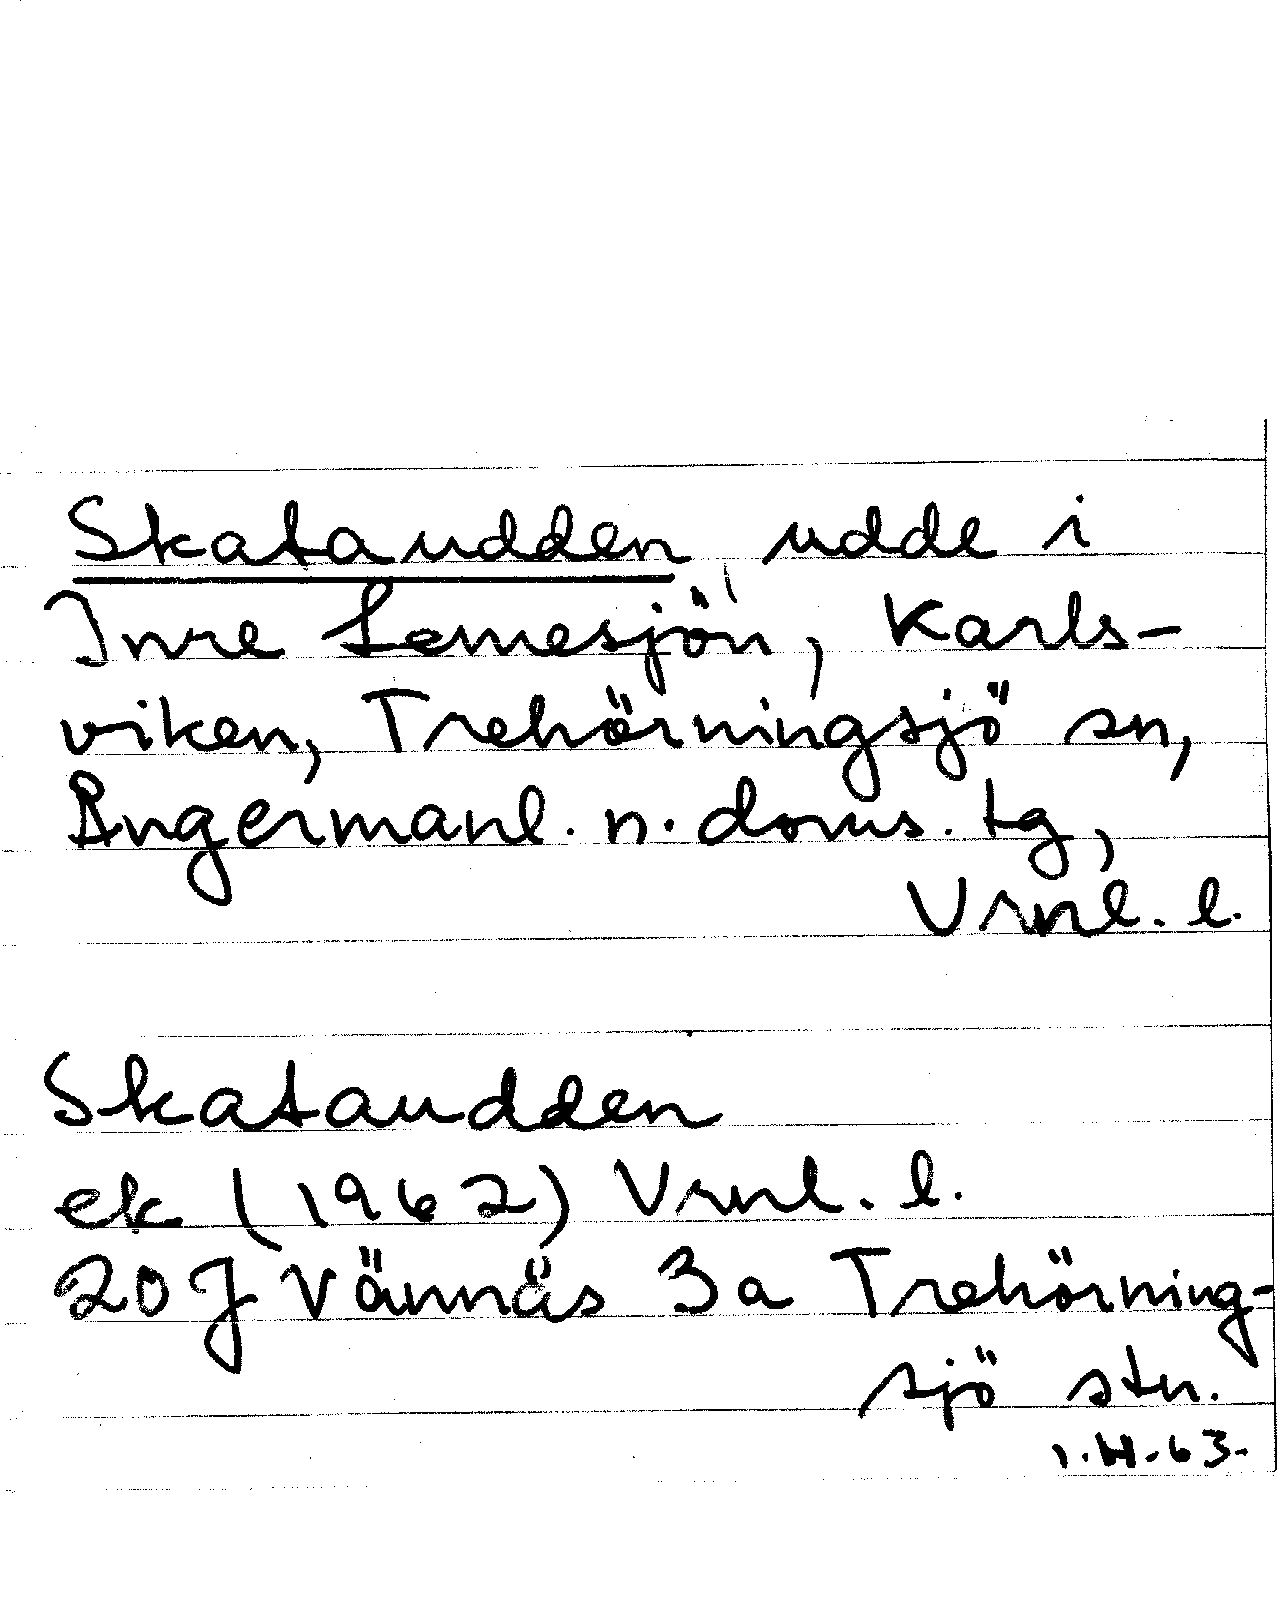 Skataudden udde i
Inre Lemesjön, Karls-
viken, Trehörningsjö sn,
Ångermanl. n. doms. tg,
Vrnl. l.
Skataudden
ek (1962) Vrnl. l.
20J Vännäs 3a Trehörning-
sjö stn.